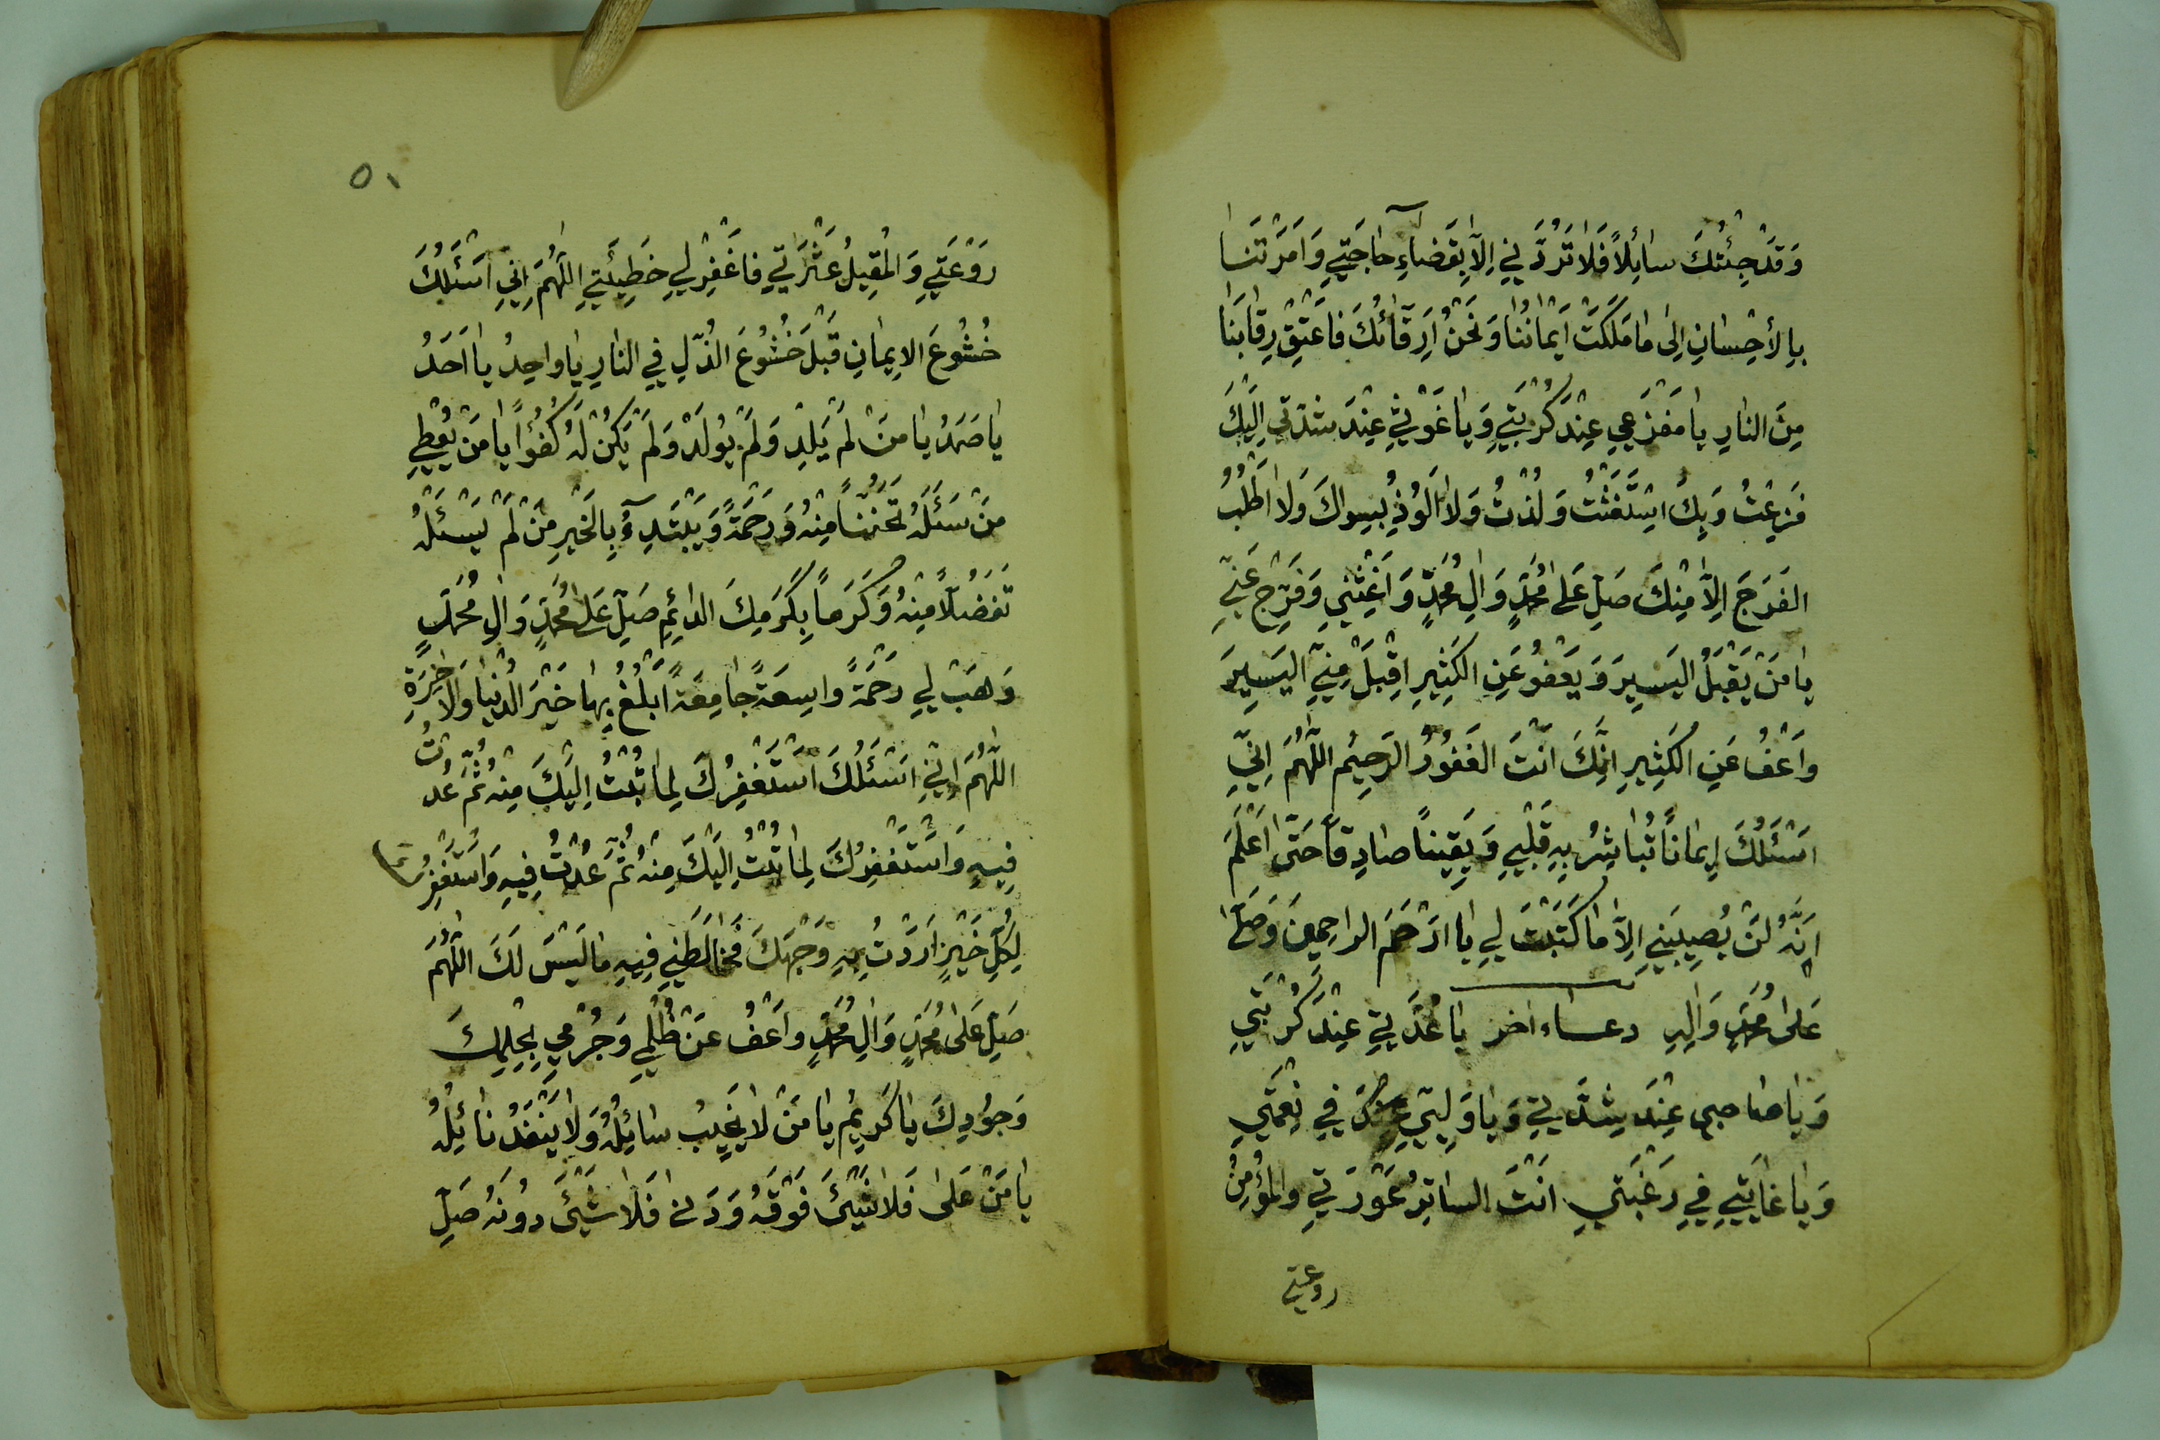 وَقَدْ جِئْتُكَ سائِلاً فَلا تَرُدَّنِي اِلّا بِقَضاءِ حاجَتِي وَاَمَرْتَنا
بِالْاِحْسانِ اِلى ما مَلَكَتْ اَيْمانُنا وَنَحْنُ اَرِقّائُكَ فَاعْتِقْ رِقابَنا
مِنَ النارِ يا مَفْزَعِي عِنْدَ كُرْبَتِي وَيا غَوْثِي عِنْدَ شِدَّتِي اِلَيْكَ
فَزِعْتُ وَبِكَ اسْتَغَثْتُ وَلُذْتُ وَلا اَلُوذُ بِسِواكَ وَلا اَطْلُبُ
الفَرَجَ اِلّا مِنْكَ صَلِّ عَلى مُحَمَّدٍ وَالِ مُحَمَّدٍ وَاَغِثْنِي وَفَرِّجْ عَنِّي
يا مَنْ يَقْبَلُ اليَسِيرَ وَيَعْفُو عَنِ الكَثِيرِ اِقْبَلْ مِنِّي اليَسِيرَ
وَاعْفُ عَنِ الكَثِيرِ اِنَّكَ اَنْتَ الغَفُورُ الرَحِيُم اللّهُمَّ اِنِّي
اَسْئَلُكَ اِيماناً تُباشِرُ بِهِ قَلْبِي وَيَقِيناً صادِقاً حَتّى اَعْلَمَ
اَنَّهُ لَنْ يُصِيبَنِي اِلّا ما كَتَبْتَ لِي يا اَرْحَمَ الراحِمِينَ وَصَلّ
عَلى مُحَمَّدٍ وَالِهِ دعاء اخر يا عُدَّتِي عِنْدَ كُرْبَتِي
وَيا صاحِبِي عِنْدَ شِدَّتِي وَيا وَلِيِّي عِنْدَ فِي نِعْمَتِي
وَيا غايَتِي فِي رَغْبَتِي اَنْتَ الساتِرُ عَوْرَتِي وَالْمُؤْمِنُ
روعتي
٥١
رَوْعَتِي وَالْمُقِيلُ عَثْرَتِي فَاغْفِرْ لِي خَطِيئَتِي اللّهُمَّ اِنِّي اَسْئَلُكَ
خُشُوعَ الاِيمانِ قَبْلَ خُشُوعَ الذُّلِّ فِي النارِ يا واحِدُ يا اَحَدُ
يا صَمَدُ يا مَنْ لَمْ يَلِدْ وَلَمْ يُولَدْ وَلَمْ يَكُنْ لَهُ كُفُؤاً يا مَنْ يُعْطِي
مَنْ سَئَلَهُ تَحَنُّناً مِنْهُ وَرَحْمَةً وَيَبْتَدِءُ بِالخَيْرِ مَنْ لَمْ يَسْئَلْهُ
تَفَضُّلاً مِنْهُ وَكَرَماً بِكَرَمِكَ الدائِمِ صَلِّ عَلى مُحَمَّدٍ وَالِ مُحَمَّدٍ
وَهَبْ لِي رَحْمَةً واسِعَةً جامِعَةً اَبْلُغُ بِها خَيْرَ الدُّنْيا وَالاخِرَةِ
اللّهُمَّ اِنِّي اَسْئَلُكَ اَسْتَغْفِرُكَ لِما تُبْتُ اِلَيْكَ مِنْهُ ثُمَّ عُدْتُ
فِيهِ وَاَسْتَغْفِرُكَ لِما تُبْتُ اِلَيْكَ مِنْهُ ثُمَّ عُدْتُ فِيهِ وَاَسْتَغْفِرُكَ
لِكُلِّ خَيْرٍ اَرَدْتُ بِهِ وَجْهَكَ فَخالَطَنِي فِيهِ ما لَيْسَ لَكَ اللّهُمَّ
صَلِّ عَلى مُحَمَّدٍ وَالِ مُحَمَّدٍ وَاعْفُ عَنْ ظُلْمِي وَجُرْمِي بِحِلْمِكَ
وَجُودِكَ يا كَرِيُم يا مَنْ لا يَخِيبُ سائِلُهُ وَلا يَنْفَدُ نائِلُهُ
يا مَنْ عَلى فَلا شَيْئَ فَوْقَهُ وَدَنى فَلا شَيْئَ دُونَهُ صَلِّ